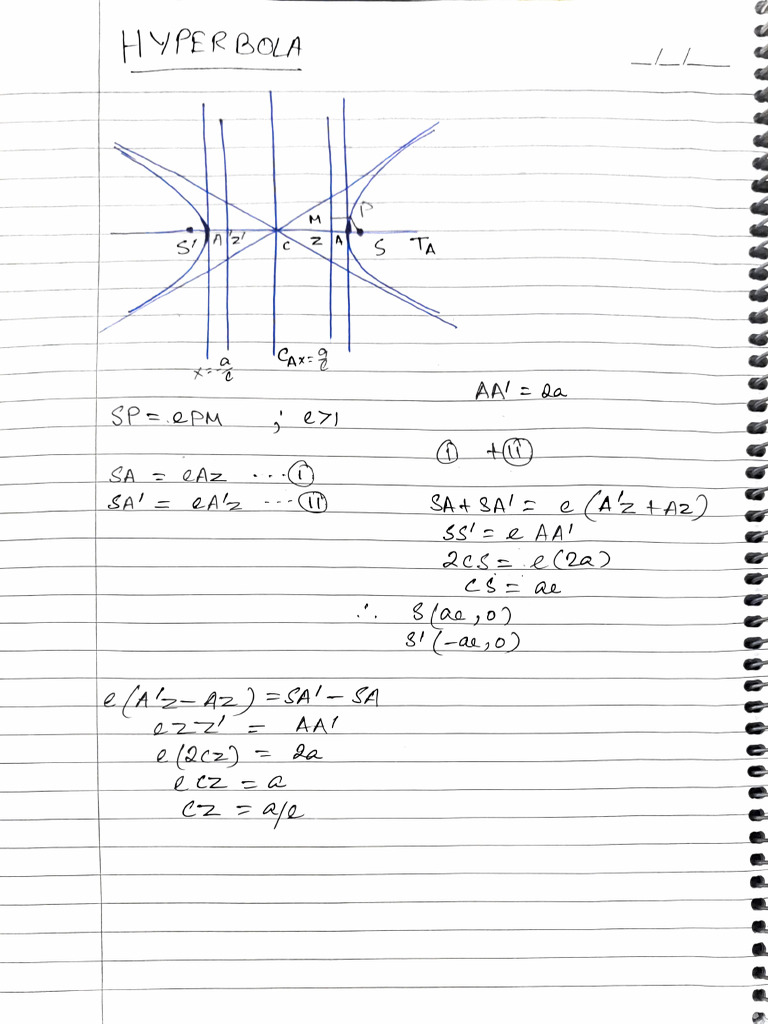 HYPERBOLA
_/_/__
M P
S' A 'Z' C Z A S TA
x=-a/e CA x=a/e
AA' = 2a
SP = ePM ; e>1
(i) + (ii)
SA = eAz ... (i)
SA' = eA'z ... (ii)
SA + SA' = e (A'z + Az)
SS' = e AA'
2CS = e(2a)
CS = ae
∴ S(ae, 0)
S'(-ae, 0)
e(A'z - Az) = SA' - SA
ezz' = AA'
e(2cz) = 2a
ecz = a
cz = a/e